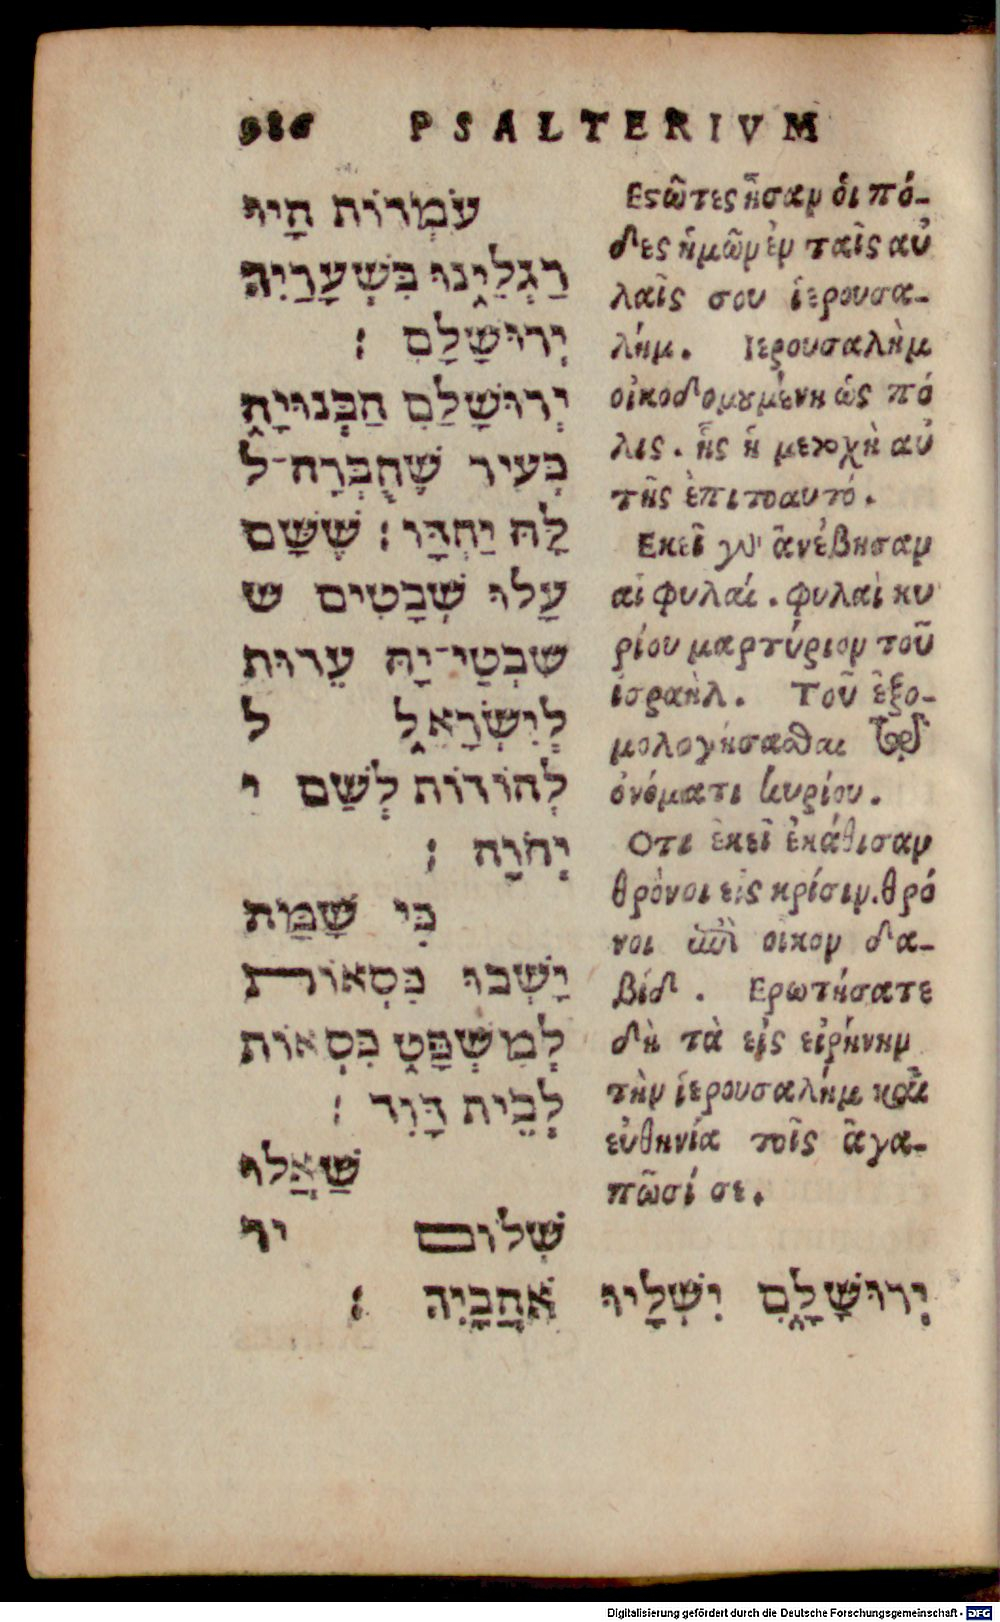 986 PSALTERIVM
עֹמְדוֹת הָיוּ
רַגְלֵינוּ בִּשְׁעָרַיִךְ
יְרוּשָׁלַםִ׃
יְרוּשָׁלַםִ הַבְּנוּיָה
כְּעִיר שֶׁחֻבְּרָה־ל
לָּהּ יַחְדָּו׃ שֶׁשָּׁם
עָלוּ שְׁבָטִים ש
שִׁבְטֵי־יָהּ עֵדוּת
לְיִשְׂרָאֵל ל
לְהוֹדוֹת לְשֵׁם י
יְהֹוָה׃
כִּי שָׁמָּה
יָשְׁבוּ כִּסְאוֹת
לְמִשְׁפָּט כִּסְאוֹת
לְבֵית דָּוִד׃
שַׁאֲלוּ
שְׁלוֹם יר
יְרוּשָׁלָםִ יִשְׁלָיוּ אֹהֲבָיִךְ׃
Εςῶτες ἦσαν ὁι πό-
δες ἡμῶν ἐν ταῖς αὐ
λαῖς σου ἱερουσα-
λήμ. Ιερουσαλὴμ
οἰκοδομȣμένη ὡς πό
λις. ἧς ἡ μετοχὴ αὐ
τῆς ἐπιτοαυτό.
Εκεῖ γὰρ ἀνέβησαν
αἱ φυλαί. φυλαὶ κυ
ρίου μαρτύριον τοῦ
ἰσραὴλ. Τοῦ ἐξο-
μολογήσασθαι τῷ
ὀνόματι κυρίου.
Οτι ἐκεῖ ἐκάθισαν
θρόνοι εἰς κρίσιν. θρό
νοι ἐπὶ οἶκον δα-
βίδ. Ερωτήσατε
δὴ τὰ εἰς εἰρήνην
τὴν ἱερουσαλήμ καὶ
εὐθηνία τοῖς ἀγα-
πῶσί σε.
Digitalisierung gefördert durch die Deutsche Forschungsgemeinschaft - DFG